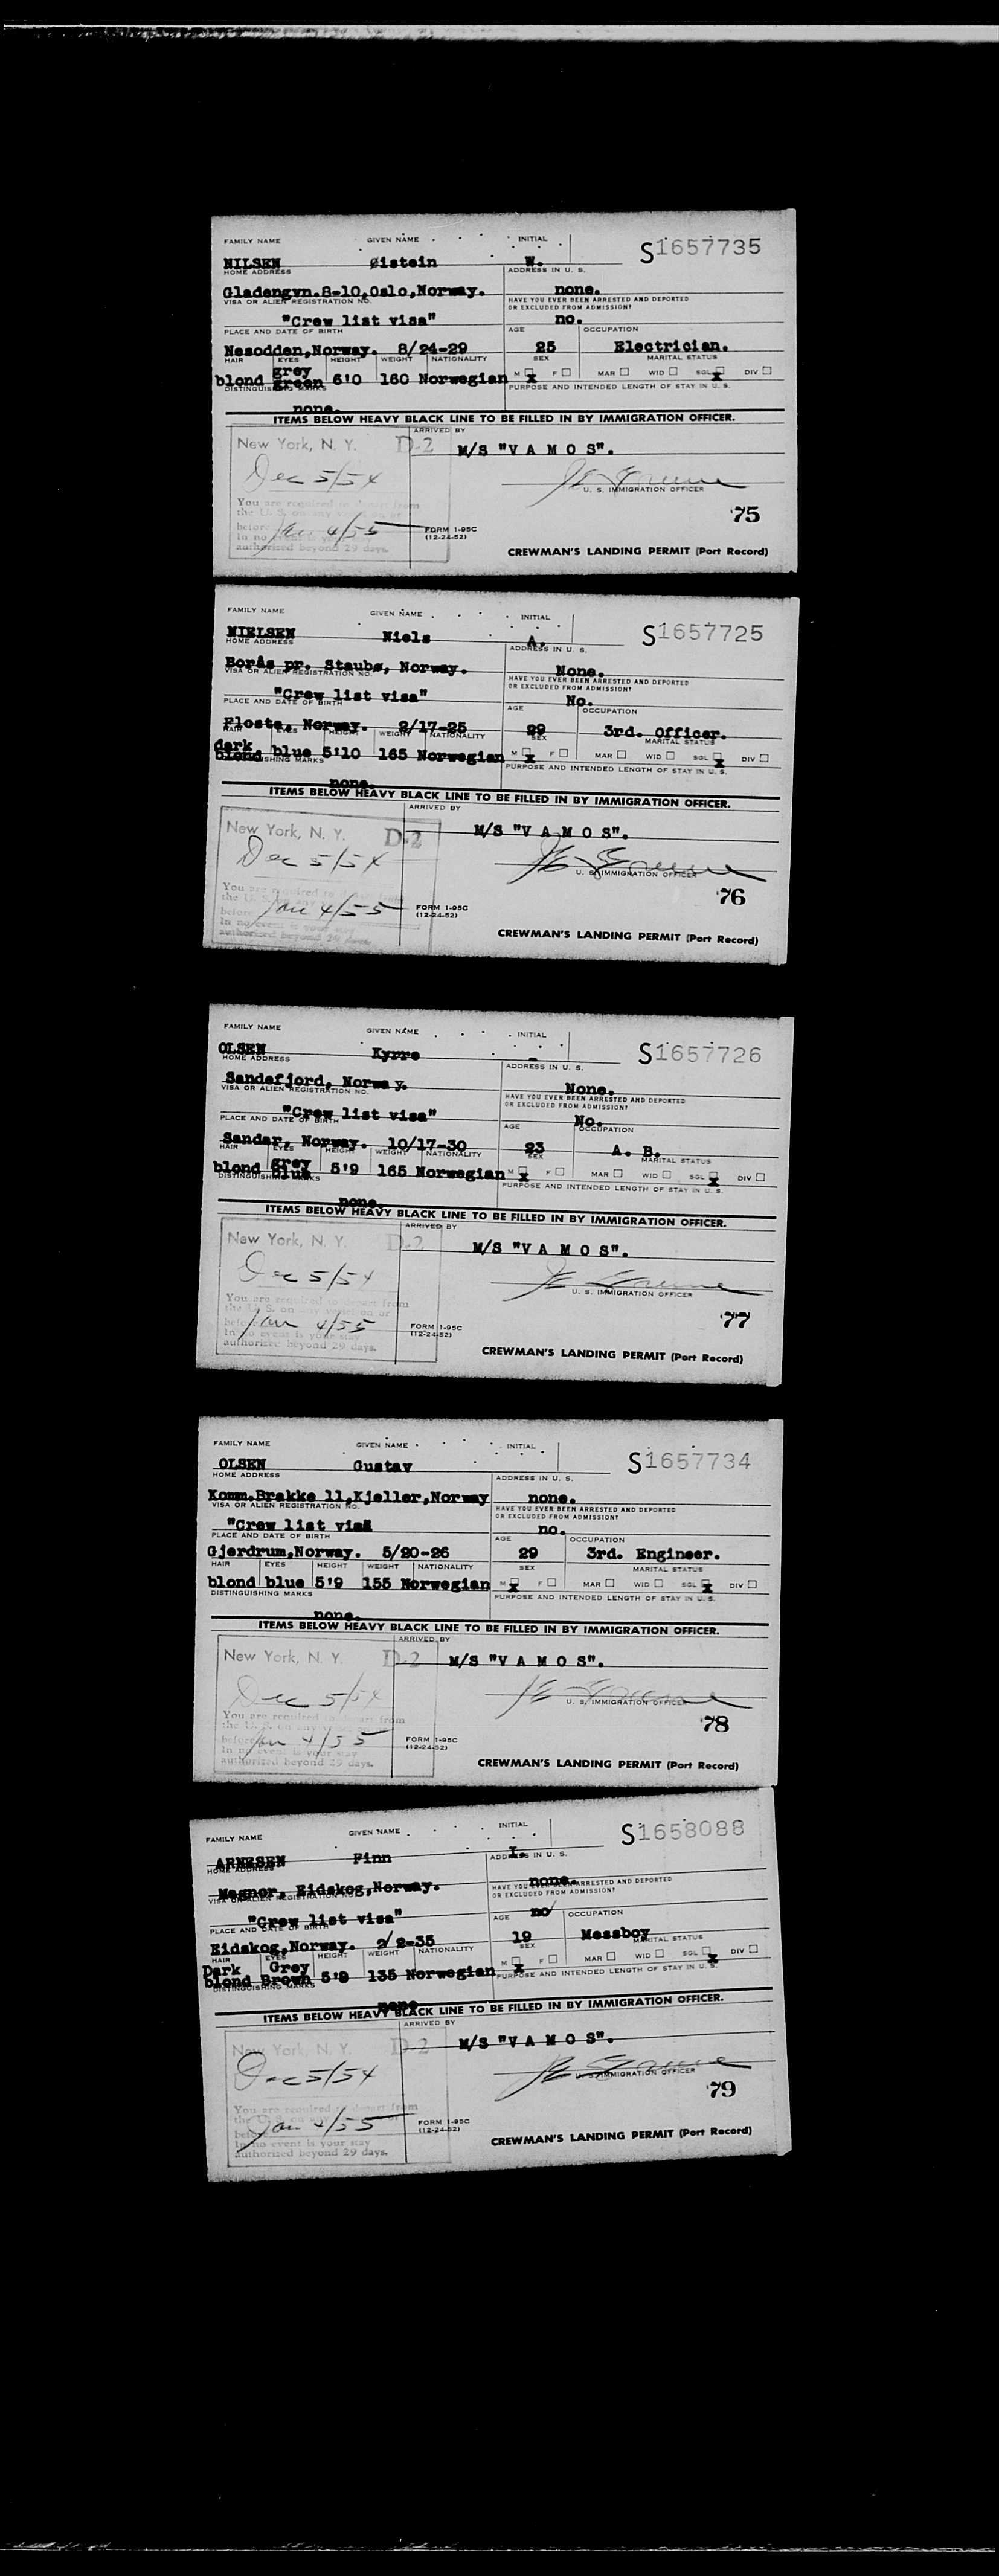 FAMILY NAME GIVEN NAME INITIAL S1657735
NILSEN Øistein W.
HOME ADDRESS ADDRESS IN U. S.
Gladengvn.8-10,Oslo,Norway. none.
VISA OR ALIEN REGISTRATION NO. HAVE YOU EVER BEEN ARRESTED AND DEPORTED OR EXCLUDED FROM ADMISSION?
"Crew list visa" no.
PLACE AND DATE OF BIRTH AGE OCCUPATION
Nesodden,Norway. 8/24-29 25 Electrician.
HAIR EYES HEIGHT WEIGHT NATIONALITY SEX MARITAL STATUS
grey
blond green 6'0 160 Norwegian M x F MAR WID SGL x DIV
DISTINGUISHING MARKS PURPOSE AND INTENDED LENGTH OF STAY IN U. S.
none.
ITEMS BELOW HEAVY BLACK LINE TO BE FILLED IN BY IMMIGRATION OFFICER.
ARRIVED BY
New York, N. Y. D-2 M/S "V A M O S".
Dec 5/54
U. S. IMMIGRATION OFFICER
You are required to depart from
the U. S. on any vessel on or
before Jan 4/55
In no
authorized beyond 29 days.
'75
FORM I-95C
(12-24-52)
CREWMAN'S LANDING PERMIT (Port Record)
FAMILY NAME GIVEN NAME INITIAL S1657725
NIELSEN Niels A.
HOME ADDRESS ADDRESS IN U. S.
Borås pr. Staubø, Norway. None.
VISA OR ALIEN REGISTRATION NO. HAVE YOU EVER BEEN ARRESTED AND DEPORTED OR EXCLUDED FROM ADMISSION?
"Crew list visa" No.
PLACE AND DATE OF BIRTH AGE OCCUPATION
Flosta, Norway. 2/17-25 29 3rd. Officer.
HAIR EYES HEIGHT WEIGHT NATIONALITY SEX MARITAL STATUS
dark
blond blue 5'10 165 Norwegian M x F MAR WID SGL x DIV
DISTINGUISHING MARKS PURPOSE AND INTENDED LENGTH OF STAY IN U. S.
none.
ITEMS BELOW HEAVY BLACK LINE TO BE FILLED IN BY IMMIGRATION OFFICER.
ARRIVED BY
New York, N. Y. D-2 M/S "V A M O S".
Dec 5/54
U. S. IMMIGRATION OFFICER
You are required to depart
the U. S. on any
before Jan 4/55
In no event is your stay
authorized beyond 29 days.
'76
FORM I-95C
(12-24-52)
CREWMAN'S LANDING PERMIT (Port Record)
FAMILY NAME GIVEN NAME INITIAL S1657726
OLSEN Kyrre -
HOME ADDRESS ADDRESS IN U. S.
Sandefjord, Norway. None.
VISA OR ALIEN REGISTRATION NO. HAVE YOU EVER BEEN ARRESTED AND DEPORTED OR EXCLUDED FROM ADMISSION?
"Crew list visa" No.
PLACE AND DATE OF BIRTH AGE OCCUPATION
Sandar, Norway. 10/17-30 23 A. B.
HAIR EYES HEIGHT WEIGHT NATIONALITY SEX MARITAL STATUS
grey
blond blue 5'9 165 Norwegian M x F MAR WID SGL x DIV
DISTINGUISHING MARKS PURPOSE AND INTENDED LENGTH OF STAY IN U. S.
none.
ITEMS BELOW HEAVY BLACK LINE TO BE FILLED IN BY IMMIGRATION OFFICER.
ARRIVED BY
New York, N. Y. D-2 M/S "V A M O S".
Dec 5/54
U. S. IMMIGRATION OFFICER
You are required to depart from
the U. S. on any vessel on or
before Jan 4/55
In no event is your stay
authorized beyond 29 days.
'77
FORM I-95C
(12-24-52)
CREWMAN'S LANDING PERMIT (Port Record)
FAMILY NAME GIVEN NAME INITIAL S1657734
OLSEN Gustav
HOME ADDRESS ADDRESS IN U. S.
Komm.Brakke 11,Kjeller,Norway none.
VISA OR ALIEN REGISTRATION NO. HAVE YOU EVER BEEN ARRESTED AND DEPORTED OR EXCLUDED FROM ADMISSION?
"Crew list visa no.
PLACE AND DATE OF BIRTH AGE OCCUPATION
Gjerdrum,Norway. 5/20-26 29 3rd. Engineer.
HAIR EYES HEIGHT WEIGHT NATIONALITY SEX MARITAL STATUS
blond blue 5'9 155 Norwegian M x F MAR WID SGL x DIV
DISTINGUISHING MARKS PURPOSE AND INTENDED LENGTH OF STAY IN U. S.
none.
ITEMS BELOW HEAVY BLACK LINE TO BE FILLED IN BY IMMIGRATION OFFICER.
ARRIVED BY
New York, N. Y. D-2 M/S "V A M O S".
Dec 5/54
U. S. IMMIGRATION OFFICER
You are required to depart from
the U. S. on any vessel on or
before Jan 4/55
In no event is your stay
authorized beyond 29 days.
'78
FORM I-95C
(12-24-52)
CREWMAN'S LANDING PERMIT (Port Record)
FAMILY NAME GIVEN NAME INITIAL S1658088
ARNESEN Finn I.
HOME ADDRESS ADDRESS IN U. S.
Magnor, Eidskog,Norway. none.
VISA OR ALIEN REGISTRATION NO. HAVE YOU EVER BEEN ARRESTED AND DEPORTED OR EXCLUDED FROM ADMISSION?
"Crew list visa" no
PLACE AND DATE OF BIRTH AGE OCCUPATION
Eidskog,Norway. 2/2-35 19 Messboy
HAIR EYES HEIGHT WEIGHT NATIONALITY SEX MARITAL STATUS
Dark Grey
blond Brown 5'8 135 Norwegian M x F MAR WID SGL x DIV
DISTINGUISHING MARKS PURPOSE AND INTENDED LENGTH OF STAY IN U. S.
none
ITEMS BELOW HEAVY BLACK LINE TO BE FILLED IN BY IMMIGRATION OFFICER.
ARRIVED BY
New York, N. Y. D-2 M/S "V A M O S".
Dec 5/54
U. S. IMMIGRATION OFFICER
You are required to depart from
the
before Jan 4/55
In no event is your stay
authorized beyond 29 days.
'79
FORM I-95C
(12-24-52)
CREWMAN'S LANDING PERMIT (Port Record)